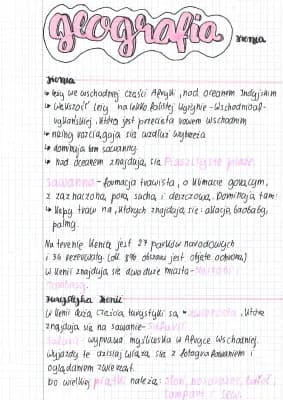 geografia
Kenia
Kenia
↳ leży we wschodniej części Afryki, nad Oceanem Indyjskim
↳ większość leży na Wyżynie Wschodnioaf-
rykańskiej, która jest przecięta rowem wschodnim
↳ niziny rozciągają się wzdłuż wybrzeża
↳ dominują tam sawanny
↳ nad oceanem znajdują się piaszczyste plaże
sawanna - formacja trawista, o klimacie gorącym,
z zaznaczoną porą suchą i deszczową. Dominują tam:
↳ kępy traw na których znajdują się: akacje, baobaby,
palmy.
Na terenie Kenii jest 27 parków narodowych
i 36 rezerwaty. (ok. 8% obszaru jest objęte ochroną)
W Kenii znajdują się dwa duże miasta - Nairobi i
Mombasa.
Turystyka Kenii
W Kenii dużą częścią turystyki są, które
znajdują się na sawannie - safari
safari - wyprawa myśliwska w Afryce Wschodniej.
Wyjazdy te dzisiaj wiążą się z fotografowaniem i
oglądaniem zwierząt.
Do wielkiej piątki należą: słoń, nosorożec, bawół,
lampart i lew.